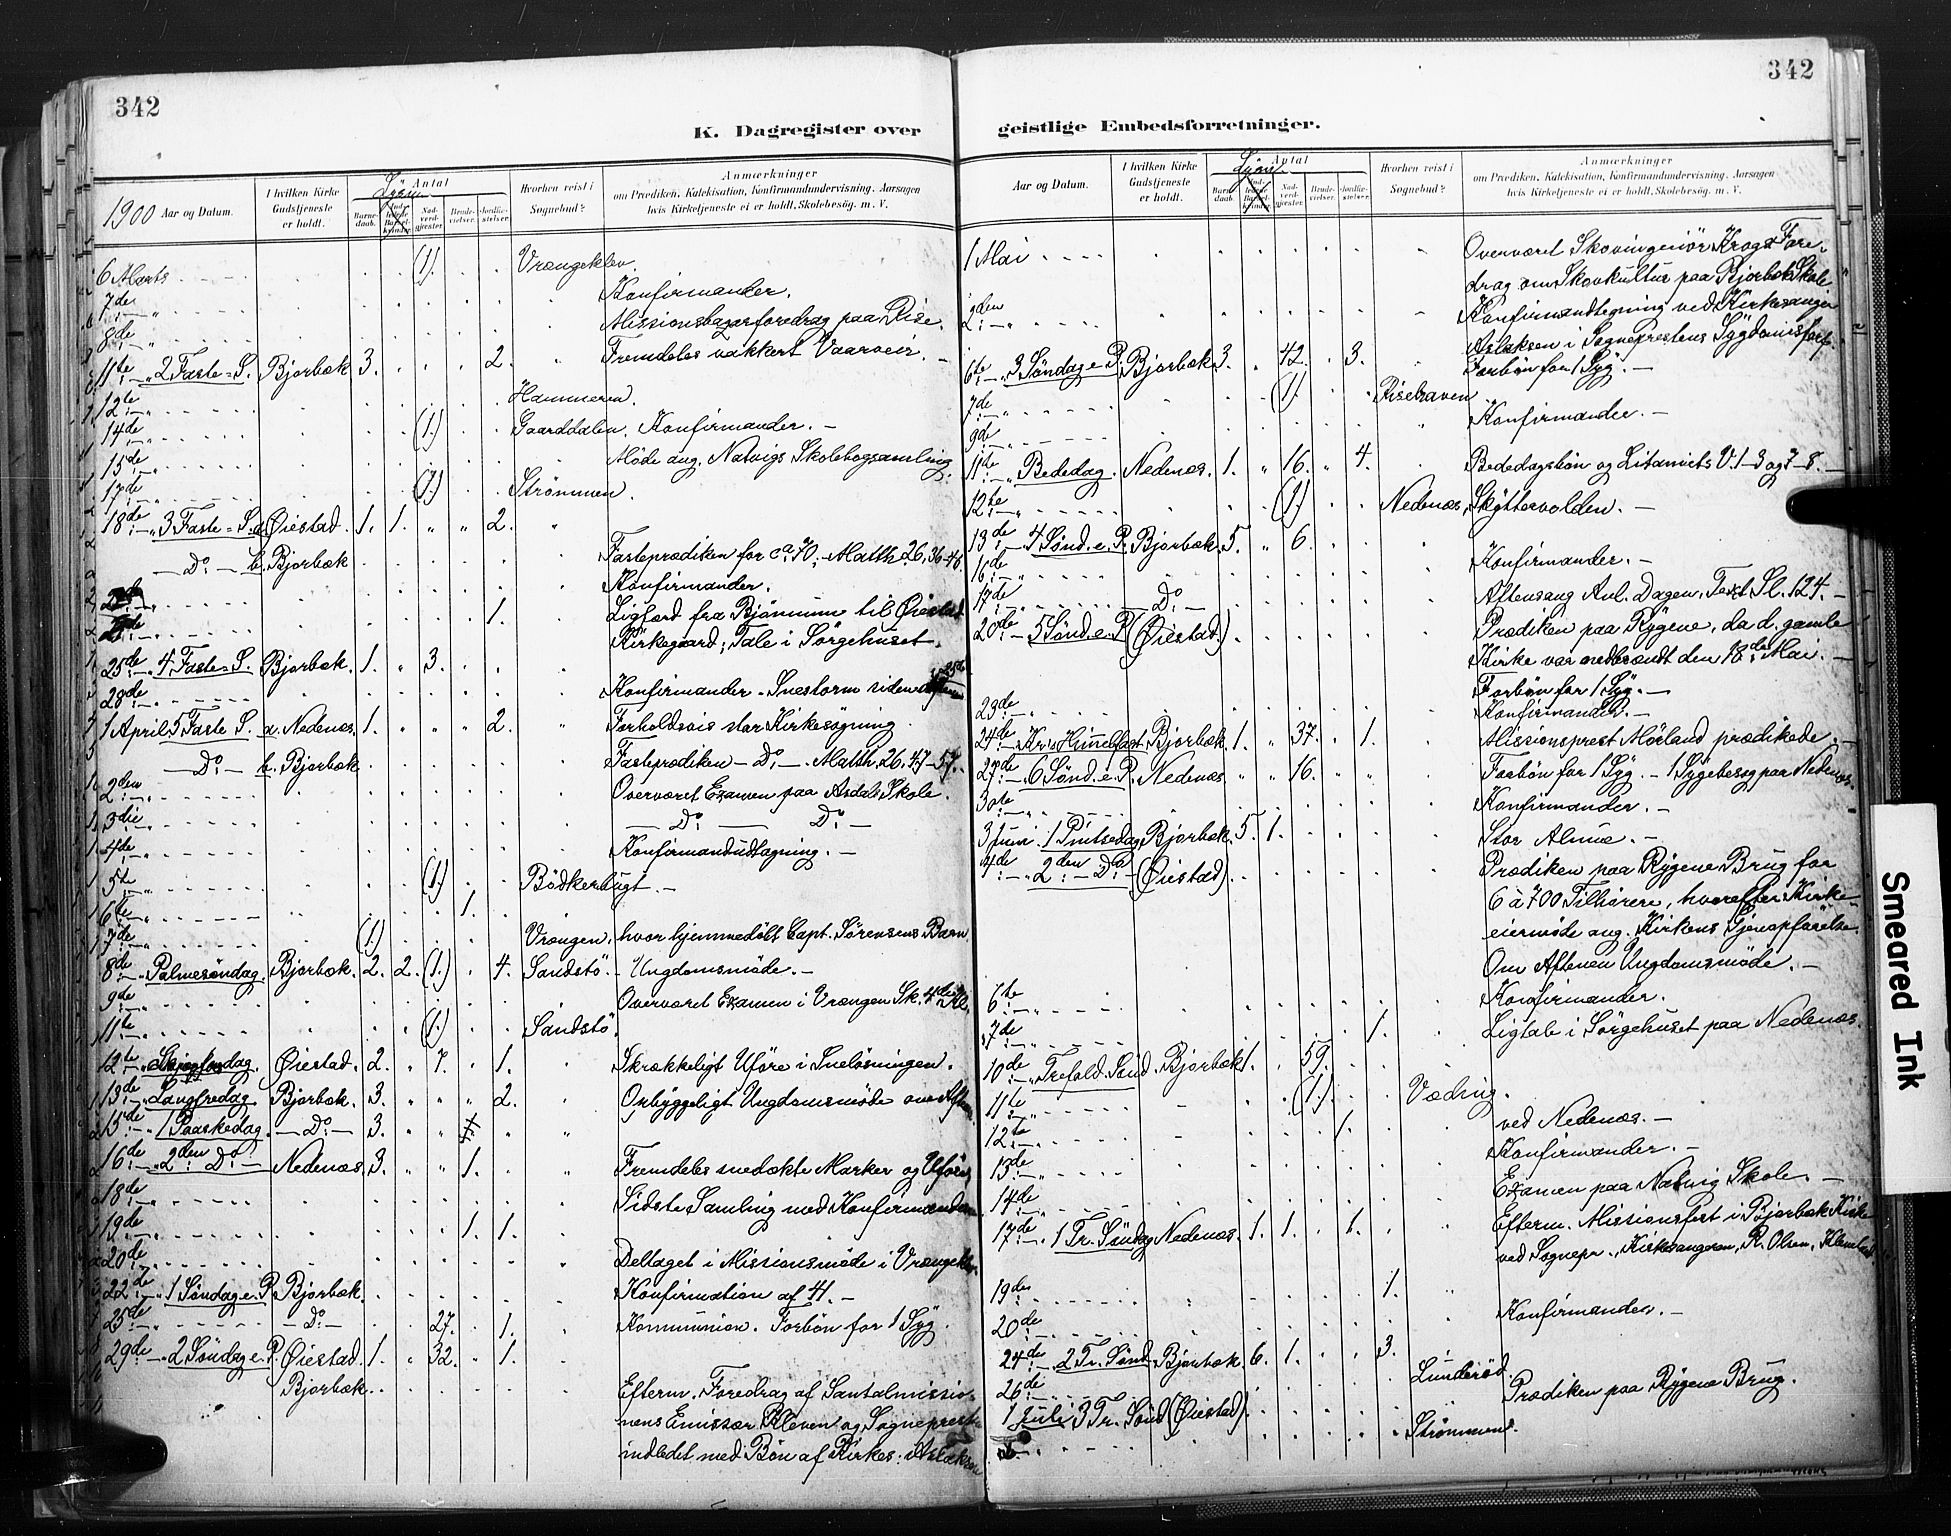 342
K. Dagregister over
1900 Aar og Datum.
I hvilken Kirke Gudstjeneste er holdt.
Antal
Barne-daab.
Nad-verd-gjæster.
Brude-vielser.
Jordfæ-stelser.
Hvorhen reist i Sognebud?
Anmærkninger
om Prædiken, Katekisation, Konfirmandundervisning, Aarsagen
hvis Kirketjeneste ei er holdt, Skolebesøg, m. V.
6 Marts (1). Vrængeklev.
7de Konfirmander.
8de Missionsbazarforedrag paa Rise.
11te 2 Faste-S. Bjorbæk 3. 2. Fremdeles vakkert Vaarveir. -
12te Hammeren.
14de (1.) Gaarddalen. Konfirmander. -
15de Møde ang. Natvigs Skolebogsamling.
17de (1.) Strømmen.
18de 3 Faste-S. a. Øiestad. 1. 1. " " 2.
- Do - b. Bjorbæk Fasteprædiken for ca 70. - Matth. 26, 36-46.
Konfirmander.
1. Ligfærd fra Bjønnum til Øiestad
Kirkegaard; Tale i Sørgehuset.
25de 4 Faste-S. Bjorbæk. 1. " 3.
28de Konfirmander. Snestorm siden
1 April 5 Faste S. a. Nedenæs. 1. " " " 2. Forholdsvis stor Kirkesøgning
- Do - b. Bjorbæk Fasteprædiken - Do - Matth. 26, 47-57.
2den Overværet Examen paa Asdals Skole.
3die - Do - Do -
4de Konfirmandudtagning. -
5te (1.) Bödkerbugt. -
6te 1.
7de (1) Vrængen, hvor hjemmedöbt Capt. Sørensens Barn.
8de Palmesöndag. Bjorbæk. 2. 2. (1.) 4. Sandstö. - Ungdomsmöde. -
9de Overværet Examen i Vrængen Sk. 4de Kl.
11te (1.) Sandstö.
12te Skjærtorsdag. Øiestad. 2. 7. 1. Skrækkeligt Uföre i Snelösningen.
13de Langfredag. Bjorbæk. 3. " " " 2. Opbyggeligt Ungdomsmöde om Aften
15de 1 Paaskedag. - Do - 3.
16de 2den Do - Nedenæs 3. " " 1. Fremdeles snedækte Marker og Uföre.
18de Sidste Samling med Konfirmanderne
19de 1. 1.
20de Deltaget i Missionsmöde i Vrængeklev.
22de 1 Søndag e. P. Bjorbæk. Konfirmation af 41. -
25de - Do - 27. 1. Kommunion. Forbön for 1 Syg.
29de 2 Söndag e. P. Øiestad. 1. " 32. " 1.
Bjorbæk. Efterm. Foredrag af Santalmissio-
nens Emissær Kleven og Sogneprest
indledet med Bön af Kirkes. Aslaksen
342
geistlige Embedsforretninger.
Aar og Datum.
I hvilken Kirke Gudstjeneste er holdt.
Antal
Barne-daab.
Nad-verd-gjæster.
Brude-vielser.
Jordfæ-stelser.
Hvorhen reist i Sognebud?
Anmærkninger
om Prædiken, Katekisation, Konfirmandundervisning, Aarsagen
hvis Kirketjeneste ei er holdt, Skolebesøg, m. V.
1 Mai Overværet Skovingeniör Krogs Fore-
drag om Skovkultur paa Bjorbæk Skole
2den Konfirmandtegning ved Kirkesanger
Aslaksen i Sogneprestens Sygdomsforf.
6te 3 Söndag e. P. Bjorbæk 3. " 42. " 3. Forbön for 1 Syg. -
7de (1). Risehaven
9de Konfirmander. -
11te Bededag. Nedenæs. 1. " 16. " 4. Bededagsbön og Litaniets V. 1-3 og 7-8. -
12te (1) Nedenæs, Skyttervolden. -
13de 4 Sönd. e. P. Bjorbæk. 5. " 6.
16de Konfirmander. -
17de - Do - Aftensang Anl. Dagen, Text Sl. 124. -
20de 5 Sönd. e. P. (Øiestad.) Prædiken paa Rygene, da d. gamle
Kirke var nedbrændt den 18de Mai. -
Forbön for 1 Syg. -
23de Konfirmander. -
24de Kr. Himmelfart Bjorbæk. 1. " 37. " 1. Missionsprest Mørland prædikede. -
27de 6 Sönd. e. P. Nedenæs " " 16. Forbön for 1 Syg. - 1 Sygebesøg paa Nedenæs.
30te Konfirmander. -
3 Juni 1 Pintsedag Bjorbæk. 5. 1. Stor Almue. -
4de 2den - Do - (Øiestad). Prædiken paa Rygene Brug for
6 à 700 Tilhörere, hvorefter Kirke-
eiermöde ang. Kirkens Gjenopförelse.
Om Aftenen Ungdomsmöde. -
6te Konfirmander.
7de 1. Ligtale i Sørgehuset paa Nedenæs.
10de Trefold. Sönd. Bjorbæk 1. 59.
11te (1.) Vædring.
12te 1. ved Nedenæs. -
13de Konfirmander. -
14de Examen paa Natvig Skole. -
17de 1 Tr. Söndag Nedenæs. 1. 1. 1. Efterm. Missionsfest i Bjorbæk Kirke
ved Sognepr., Kirkesangeren, R. Olsen,
19de 1.
20de Konfirmander. -
24de 2 Tr. Sönd. Bjorbæk. 6. 1. 3.
26de Lunderöd.
1 Juli 3 Tr. Sönd (Øiestad). Prædiken paa Rygene Brug.
Strömmen.
Smeared Ink